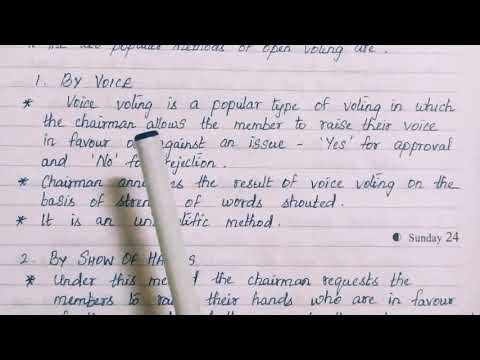 popular methods of open voting are :
1. BY VOICE
* Voice voting is a popular type of voting in which
the chairman allows the member to raise their voice
in favour against an issue - 'Yes' for approval
and 'No' rejection.
* Chairman the result of voice voting on the
basis of of words shouted.
* It is an method.
Sunday 24
2. BY SHOW OF
* Under this the chairman requests the
members to their hands who are in favour